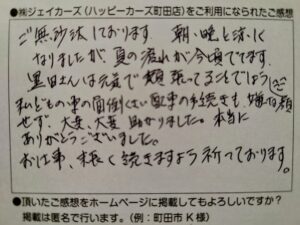 ●㈱ジェイカーズ(ハッピーカーズ町田店)をご利用になられたご感想
ご無沙汰しております 朝・晩と涼しく
なりましたが、夏の流れが今頃でてます。
黒田さんは元気で頑張ってることでしょう
私どもの車の面倒くさい配車の手続きも、嫌な顔
せず、大変、大変 助かりました。本当に
ありがとうございました。
お仕事、末長く続きますよう祈っております。
●頂いたご感想をホームページに掲載してもよろしいですか?
掲載は匿名で行います。(例:町田市K様)